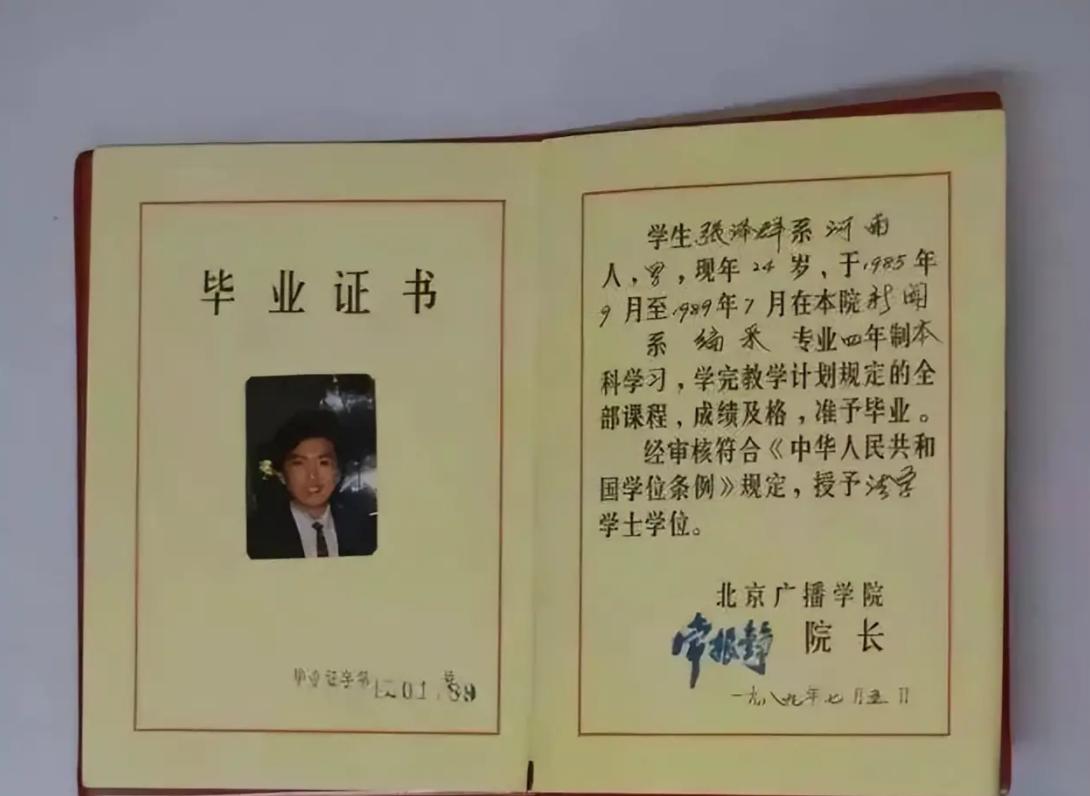 毕业证书
毕业证字第 号
学生張泽群系河南
人，男，现年24岁，于1985年
9月至1989年7月在本院新闻
系 编采 专业四年制本
科学习，学完教学计划规定的全
部课程，成绩及格，准予毕业。
经审核符合《中华人民共和
国学位条例》规定，授予法学
学士学位。
北京广播学院
常振静 院长
一九八九年七月五日